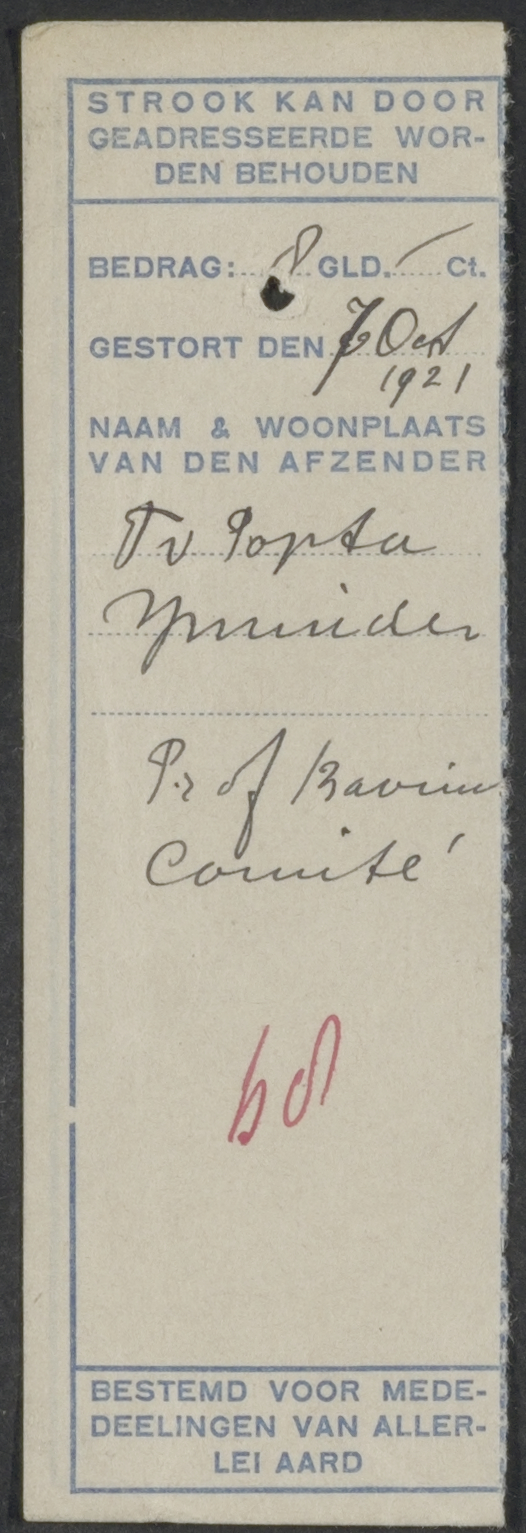 STROOK KAN DOOR
GEADRESSEERDE WOR-
DEN BEHOUDEN
BEDRAG: 8 GLD. — Ct.
GESTORT DEN 7 Oct
1921
NAAM & WOONPLAATS
VAN DEN AFZENDER
Tv Popta
Ymuiden
Prof Bavinck
Comité
68
BESTEMD VOOR MEDE-
DEELINGEN VAN ALLER-
LEI AARD